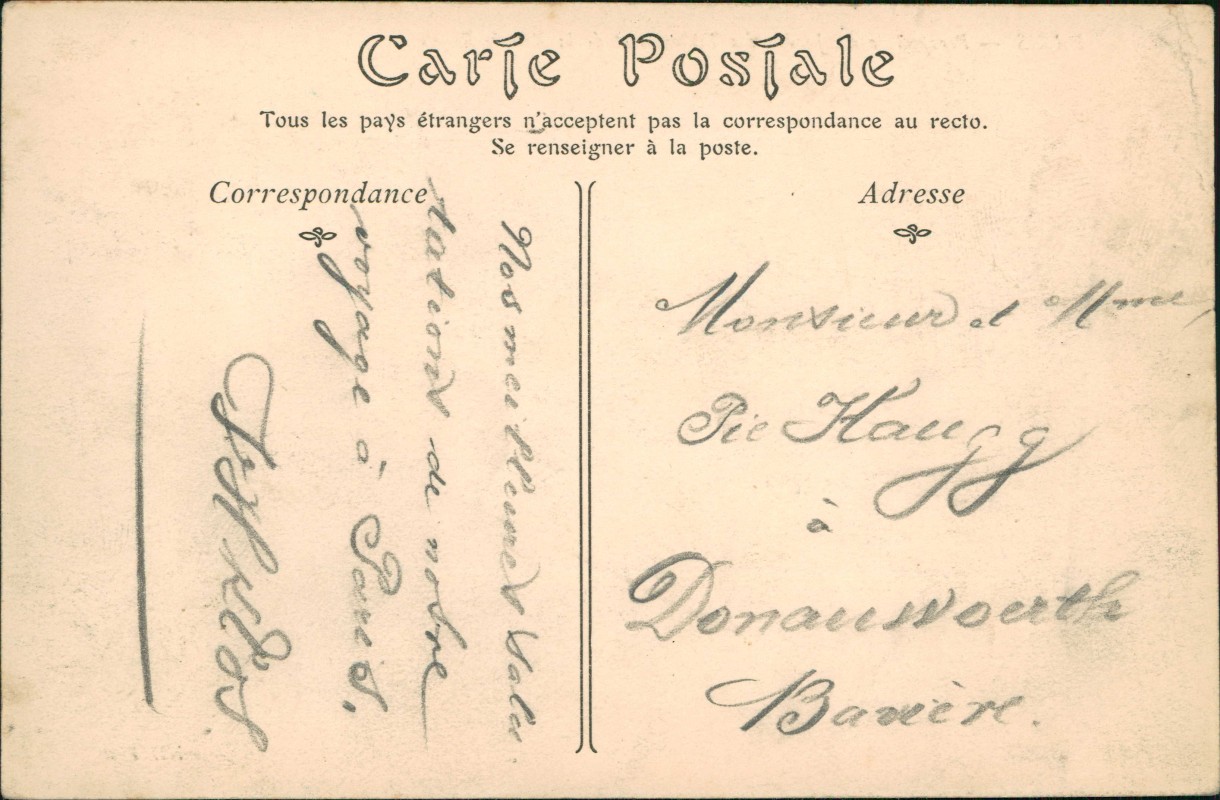 Carte Postale
Tous les pays étrangers n'acceptent pas la correspondance au recto.
Se renseigner à la poste.
Correspondance
Nos meilleures salu
tations de notre
voyage à Paris.
Adresse
Monsieur et Mme
Pie Haugg
à
Donauwoerth
Bavière.